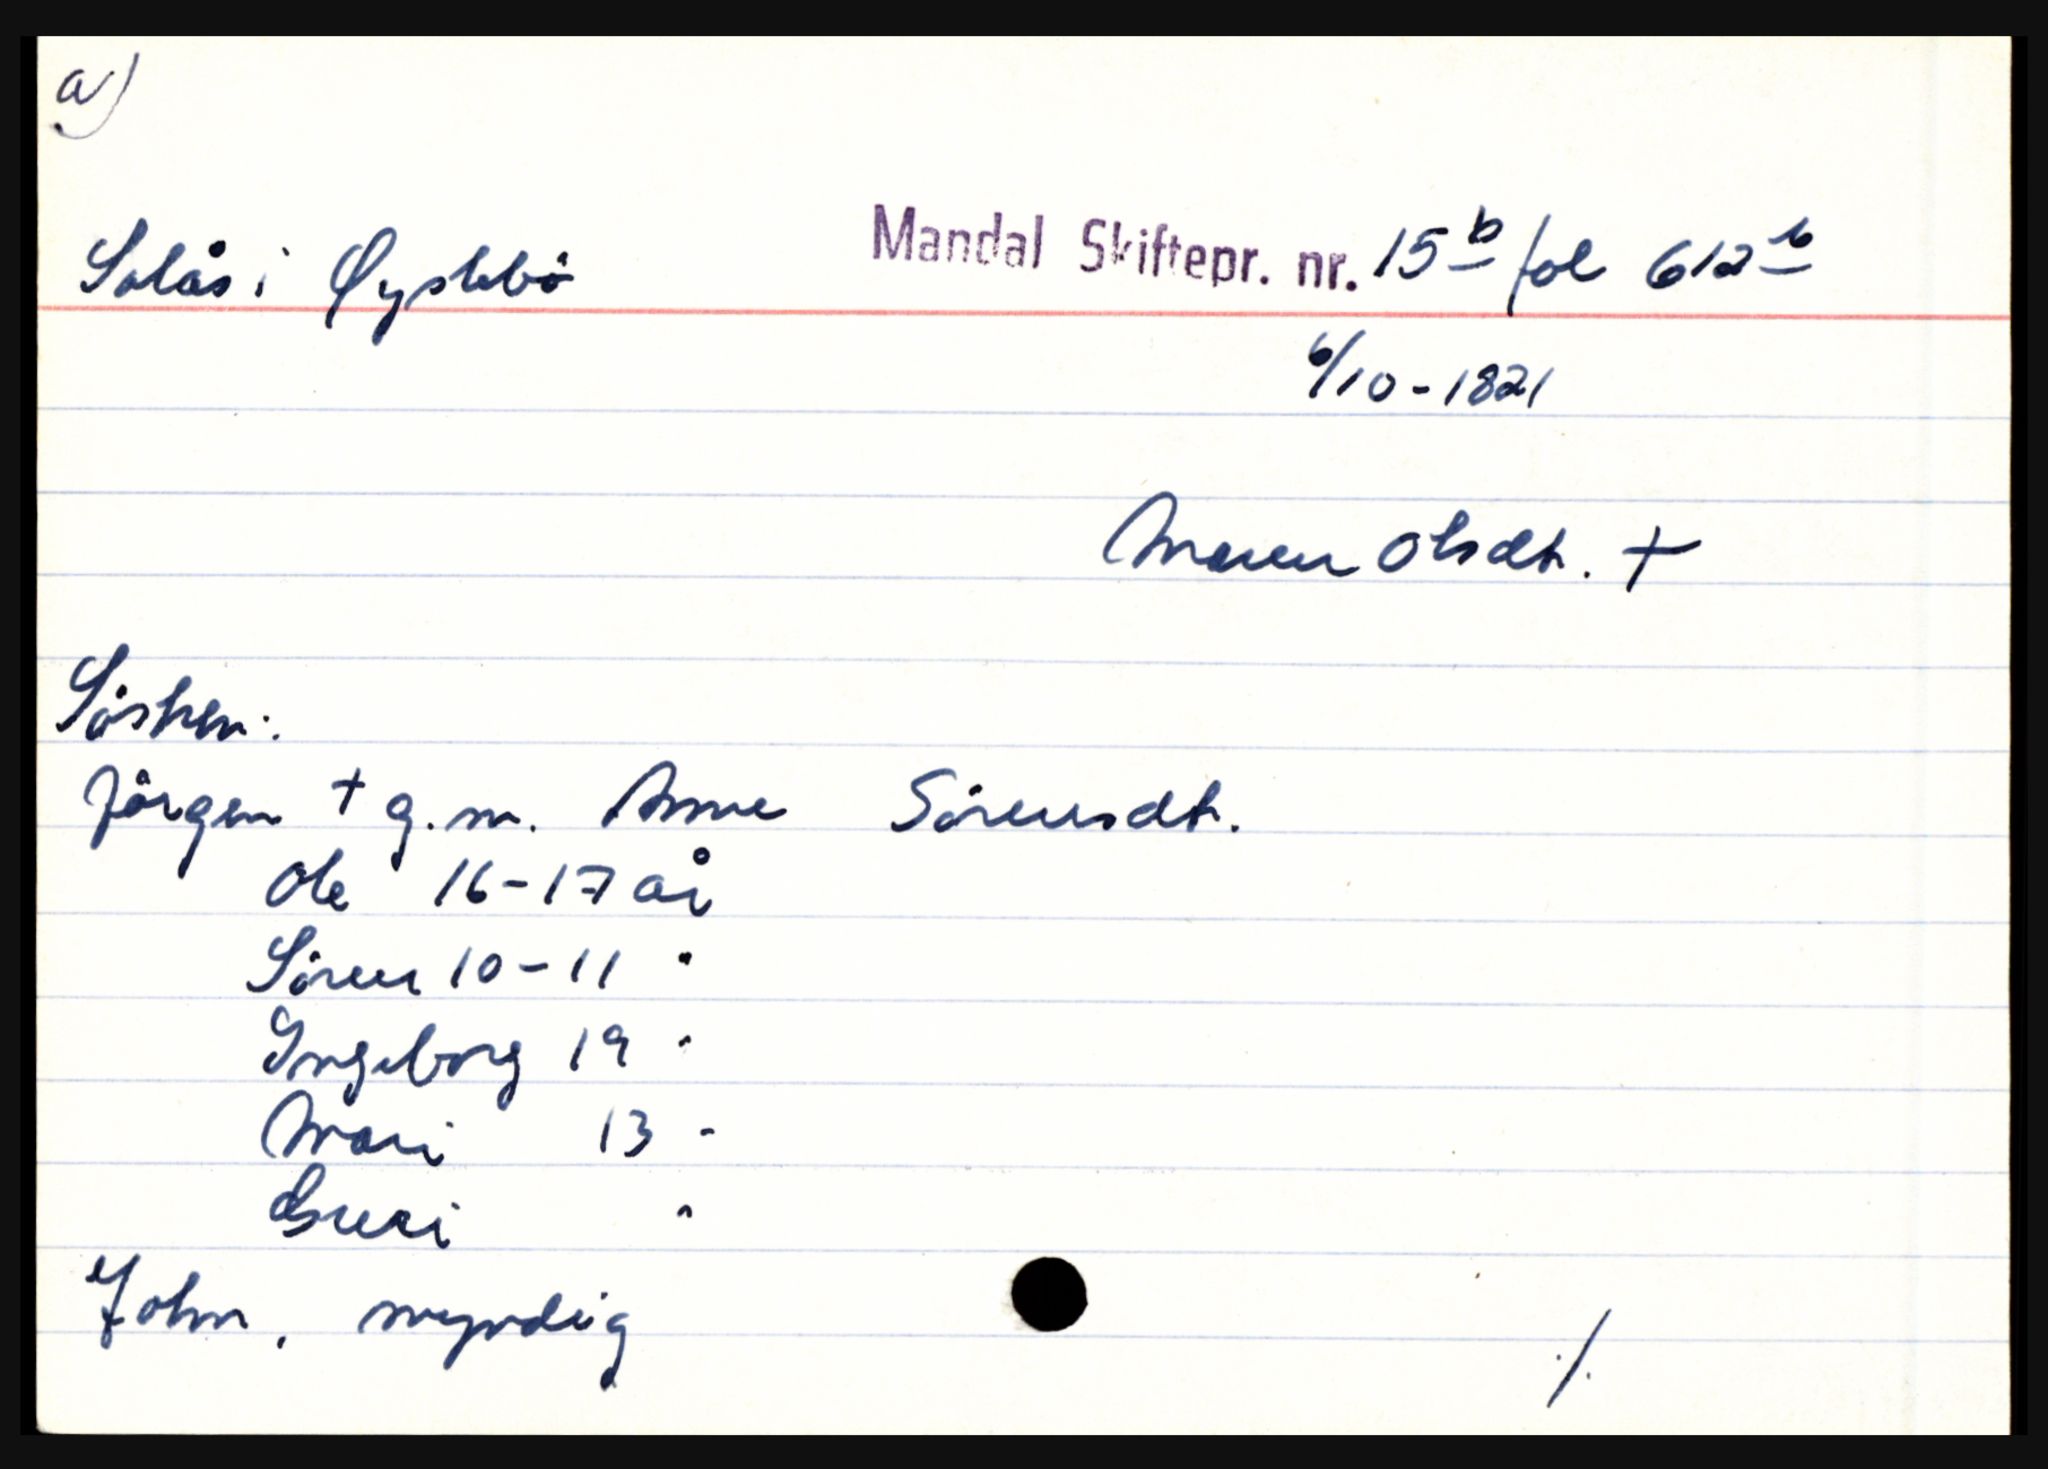 a)
Solås i Øyslebö Mandal Skiftepr. nr. 15 b fol 612 b
6/10-1821
Maren Olsdt. +
Sösken:
Jörgen + g.m. Anne Sörensdt.
Ole 16-17 år
Sören 10-11 "
Ingeborg 19 "
Mari 13 "
Guri "
John, myndig
./.